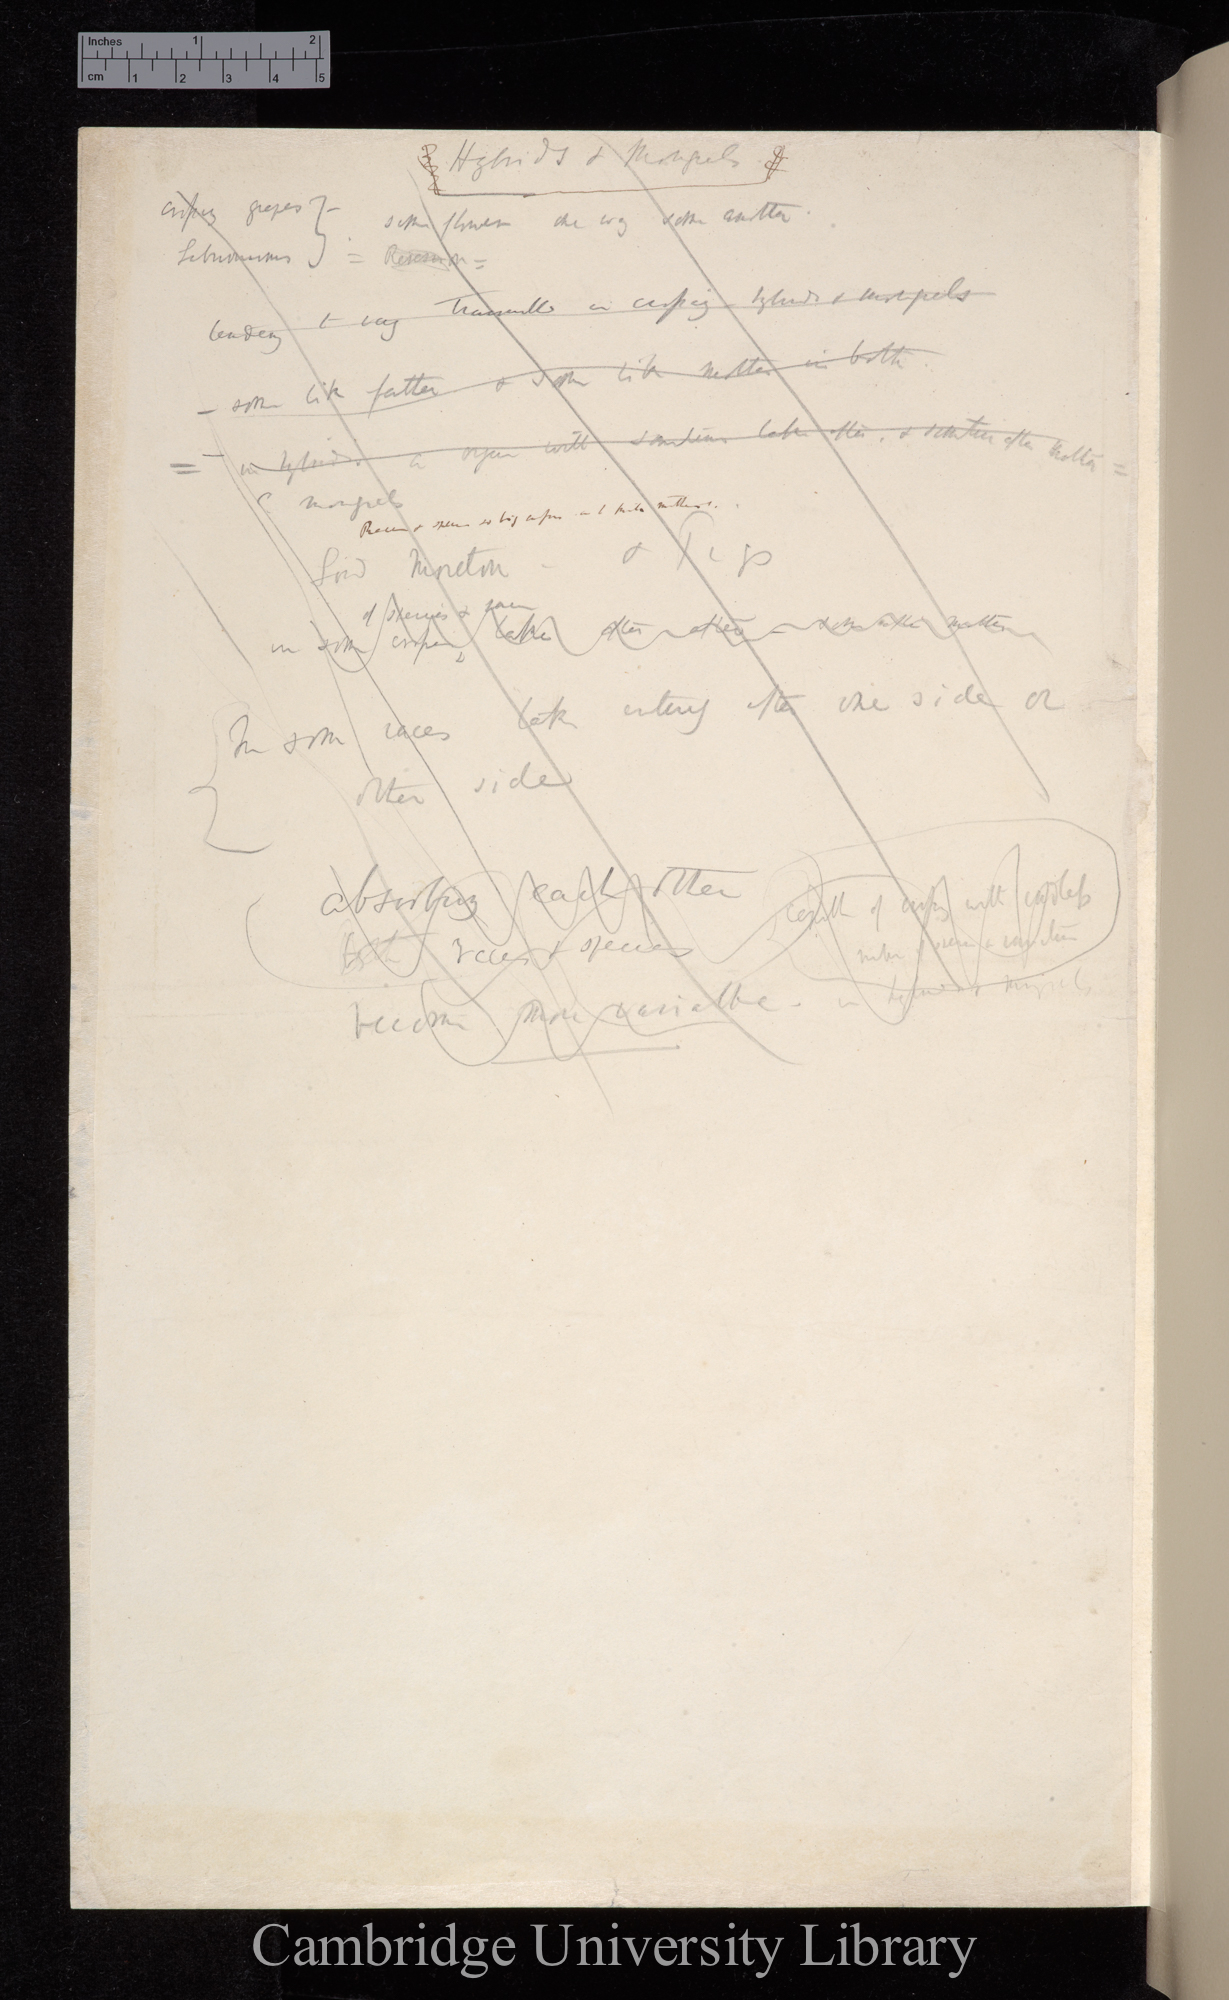 Inches 1 2
cm 1 2 3 4 5
Hybrids & Mongrels
crossing grapes } – some flower one way some another.
Laburnums } = Reversion =
tendency to vary transmitted in crossing hybrids & mongrels
– some like father & some like mother in both.
= – in hybrids. an organ will sometimes take after, & sometimes after mother =
& mongrels
Races & species
Lord Moreton – & Pigs
of species & races
in some crosses, take after & some after mother
In some races take entirely after one side or
other side
absorbing each other
result of crossing with
both races & species
become more variable – in hybrids & mongrels
Cambridge University Library